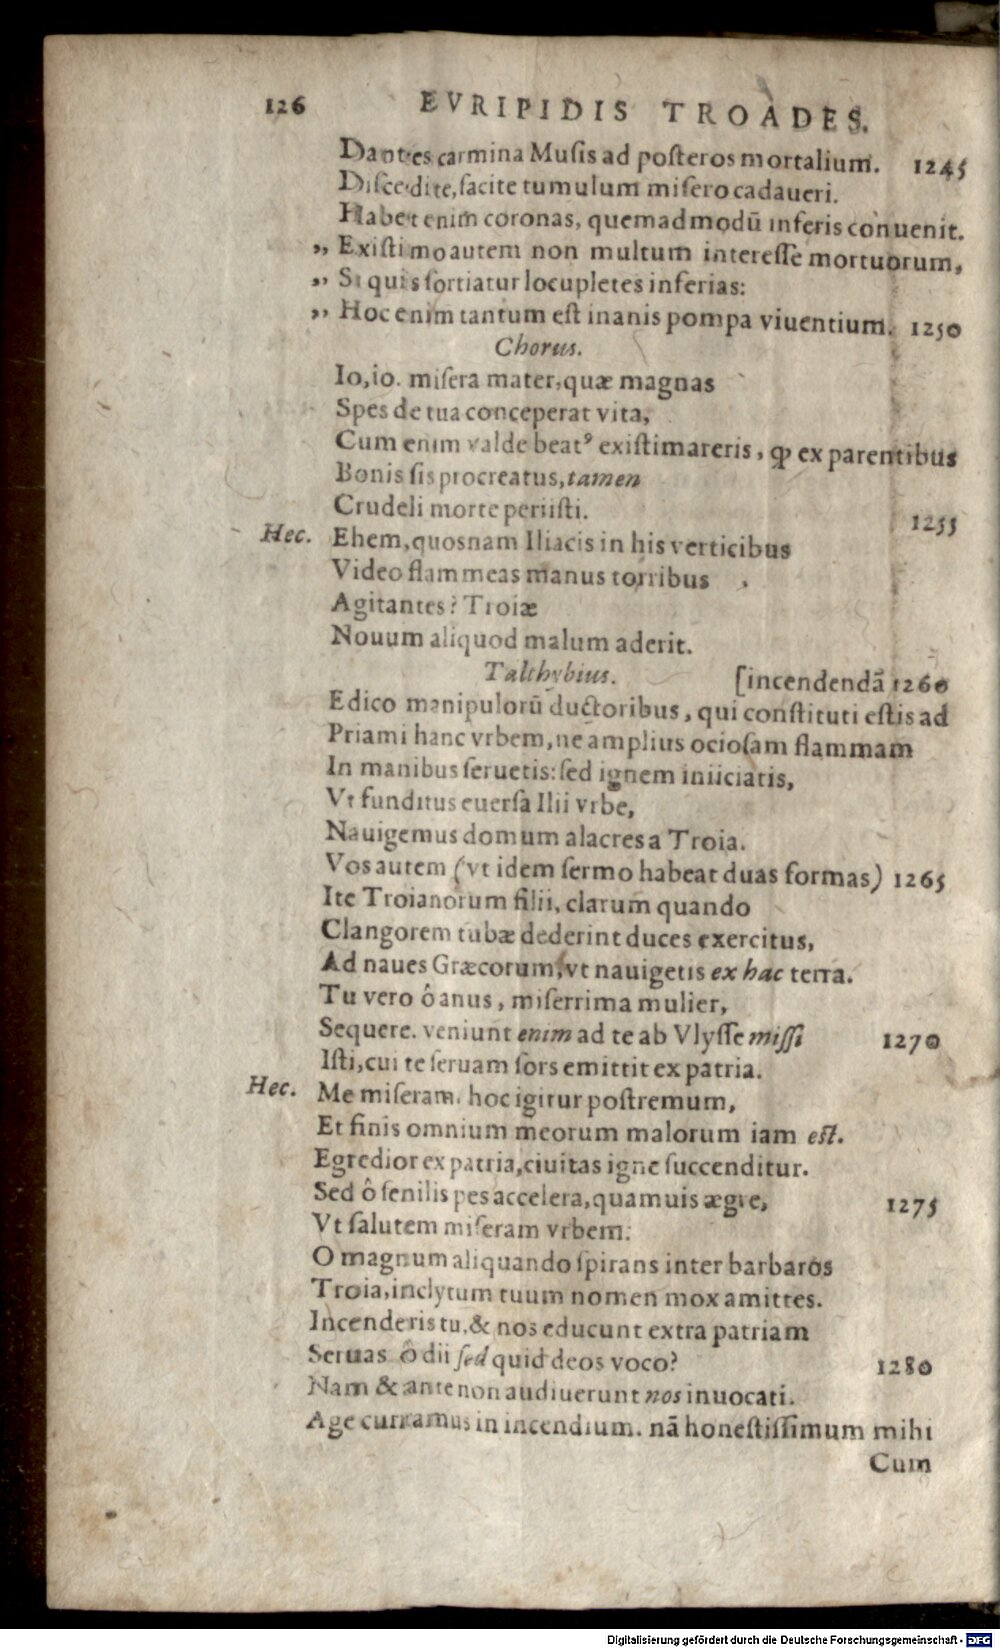 126 EVRIPIDIS TROADES.
Dantes carmina Musis ad posteros mortalium. 1245
Discedite, facite tumulum misero cadaueri.
Habet enim coronas, quemadmodū inferis conuenit.
„ Existimo autem non multum interesse mortuorum,
„ Si quis sortiatur locupletes inferias:
„ Hoc enim tantum est inanis pompa viuentium. 1250
Chorus.
Io, io. misera mater, quæ magnas
Spes de tua conceperat vita,
Cum enim valde beatꝰ existimareris, ꝙ ex parentibus
Bonis sis procreatus, tamen
Crudeli morte periisti. 1255
Hec. Ehem, quosnam Iliacis in his verticibus
Video flammeas manus torribus
Agitantes? Troiæ
Nouum aliquod malum aderit.
Talthybius. [incendendā 1260
Edico manipulorū ductoribus, qui constituti estis ad
Priami hanc vrbem, ne amplius ociosam flammam
In manibus seruetis: sed ignem iniiciatis,
Vt funditus euersa Ilii vrbe,
Nauigemus domum alacres a Troia.
Vos autem (vt idem sermo habeat duas formas) 1265
Ite Troianorum filii, clarum quando
Clangorem tubæ dederint duces exercitus,
Ad naues Græcorum, vt nauigetis ex hac terra.
Tu vero ô anus, miserrima mulier,
Sequere. veniunt enim ad te ab Vlysse missi 1270
Isti, cui te seruam sors emittit ex patria.
Hec. Me miseram. hoc igitur postremum,
Et finis omnium meorum malorum iam est.
Egredior ex patria, ciuitas igne succenditur.
Sed ô senilis pes accelera, quamuis ægre, 1275
Vt salutem miseram vrbem:
O magnum aliquando spirans inter barbaros
Troia, inclytum tuum nomen mox amittes.
Incenderis tu, & nos educunt extra patriam
Seruas ô dii sed quid deos voco? 1280
Nam & ante non audiuerunt nos inuocati.
Age curramus in incendium. nā honestissimum mihi
Cum
Digitalisierung gefördert durch die Deutsche Forschungsgemeinschaft - DFG